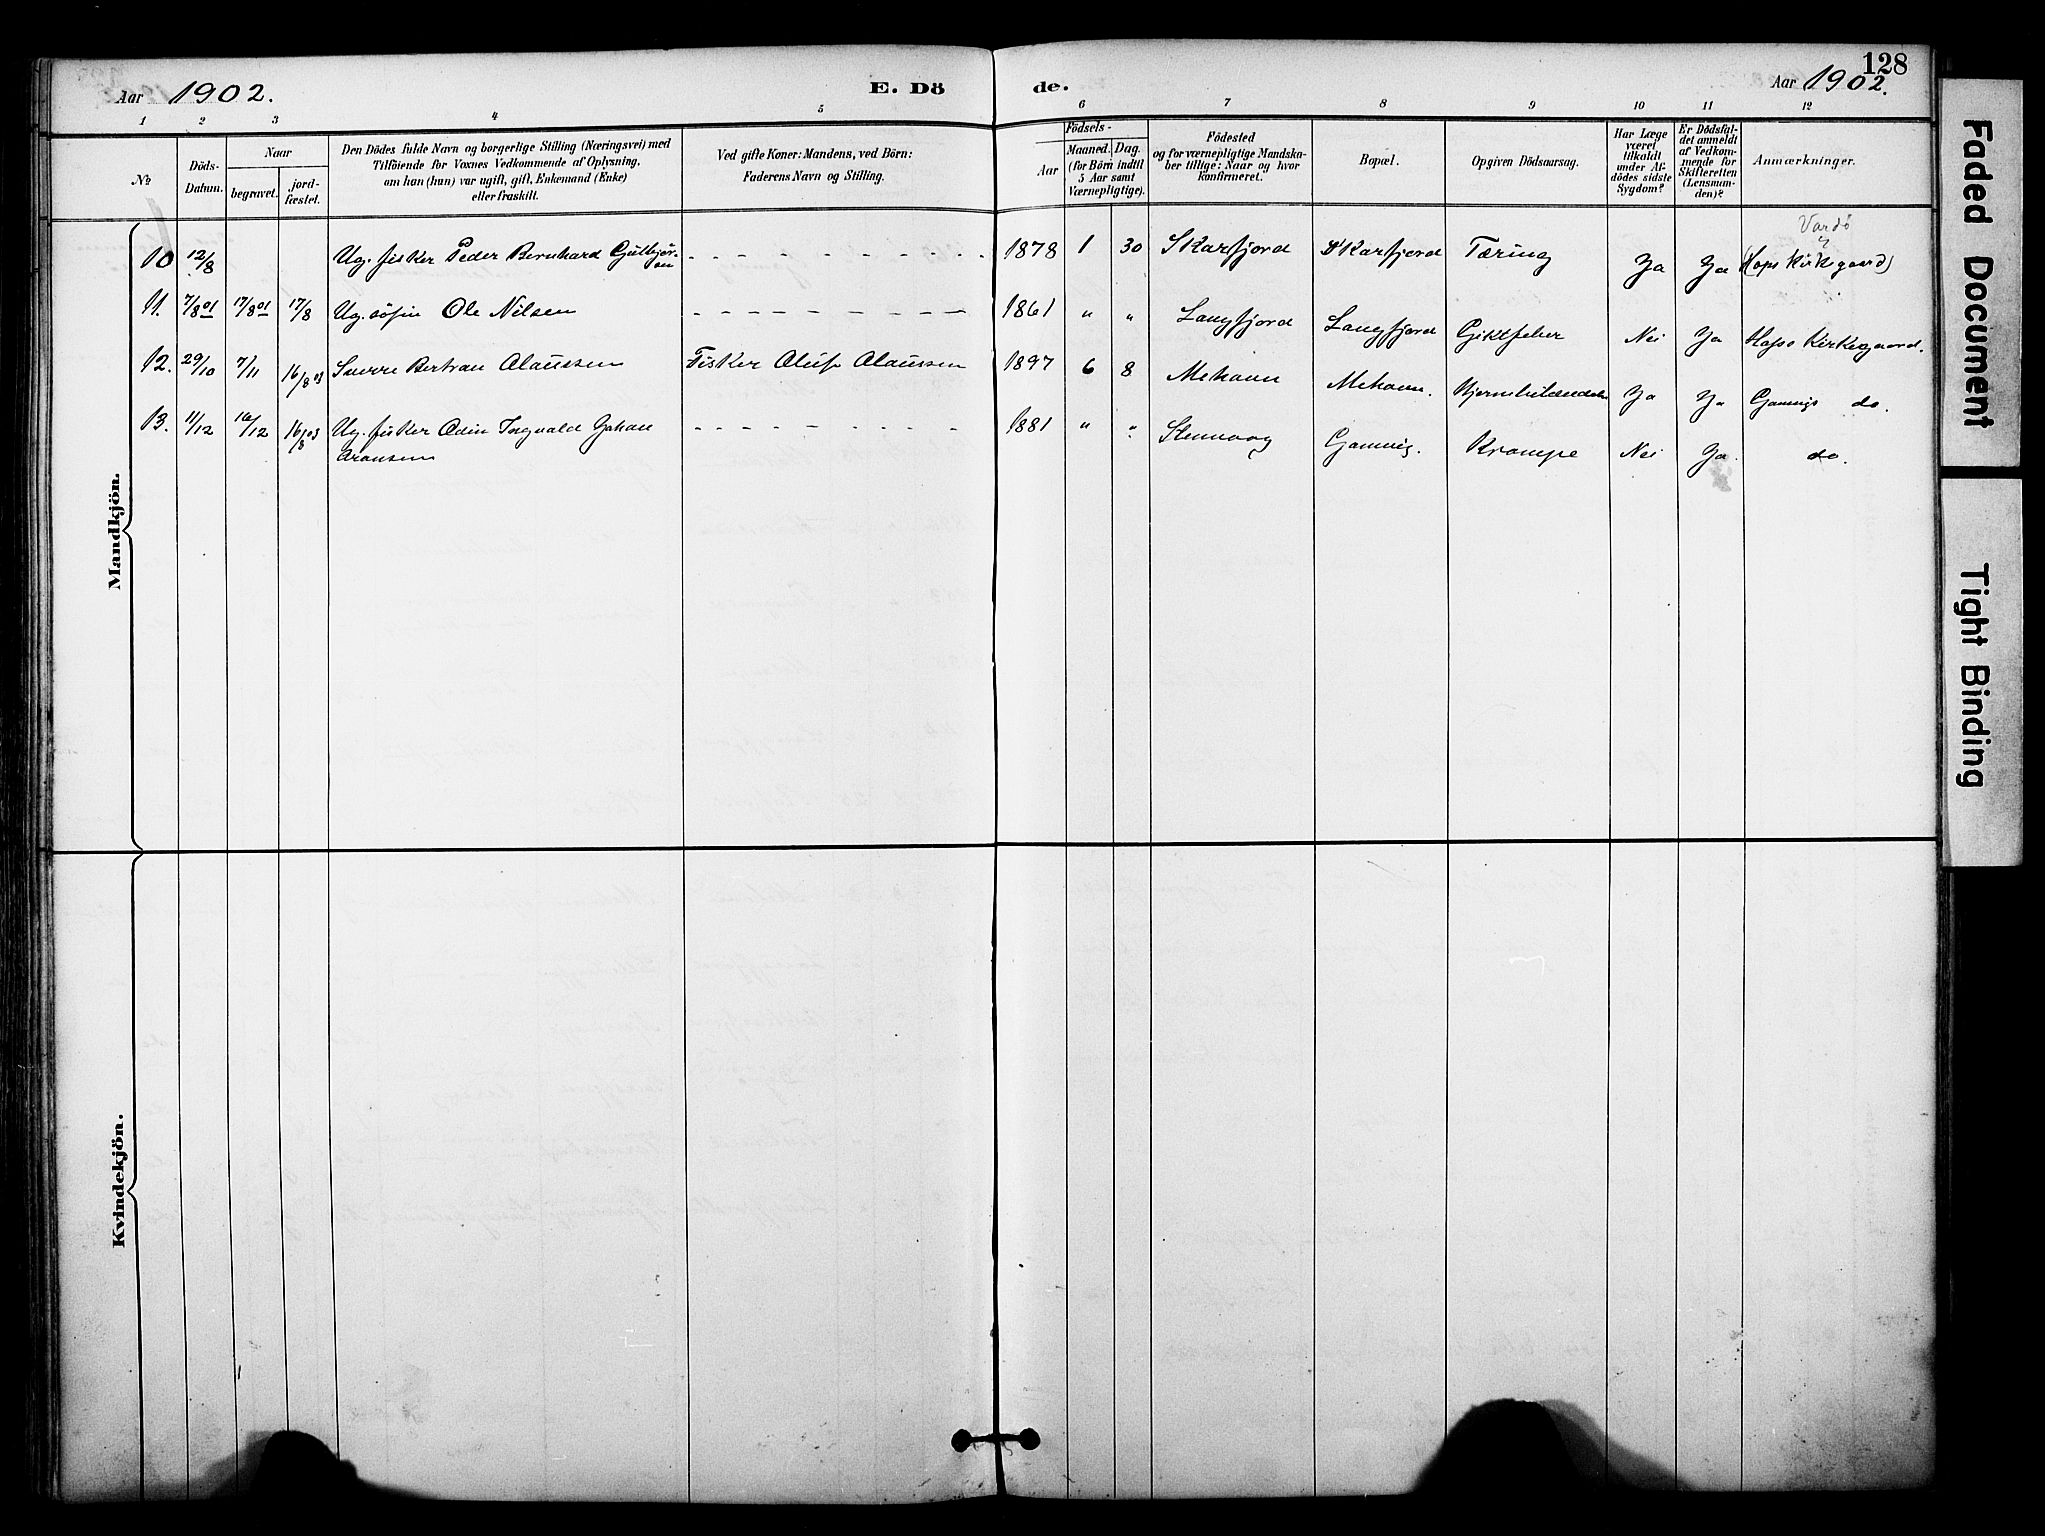 128
Aar 1902.
E. Dö
de.
Aar 1902.
1 2 3 4 5 6 7 8 9 10 11 12
No
Döds-
Datum.
Naar
begravet.
jord-
fæstet.
Den Dödes fulde Navn og borgerlige Stilling (Næringsvei) med
Tilföiende for Voxnes Vedkommende af Oplysning,
om han (hun) var ugift, gift, Enkemand (Enke)
eller fraskilt.
Ved gifte Koner: Mandens, ved Börn:
Faderens Navn og Stilling.
Födsels-
Aar
Maaned.
Dag.
(for Börn indtil
5 Aar samt
Værnepligtige).
Födested
og for værnepligtige Mandska-
ber tillige: Naar og hvor
konfirmeret.
Bopæl.
Opgiven Dödsaarsag.
Har Læge
været
tilkaldt
under Af-
dödes sidste
Sygdom?
Er Dödsfal-
det anmeldt
af Vedkom-
mende for
Skifteretten
(Lensman-
den)?
Anmærkninger.
Mandkjön.
Vardö
10 12/8 Ug. fisker Peder Bernhard 1878 1 30 Skarfjord Skarfjord Tæring Ja Ja (Hops Kirkegaard)
11. 7/8 01 17/8 01 17/8 Ug. Ole Nilsen 1861 " " Langfjord Langfjord Giktfeber Nei Ja Hops Kirkegaard.
12. 29/10 7/11 16/8 03 Sverre Bertran Olaussen Fisker Oluf Olaussen 1897 6 8 Mehavn Mehavn. Ja Ja Gamvigs do.
13. 11/12 16/12 16/8 03 Ug. fisker Odin Ingvald Johan 1881 " " Gamvig. Krampe Nei Ja. do.
Aronsen
Kvindekjön.
Faded Document
Tight Binding